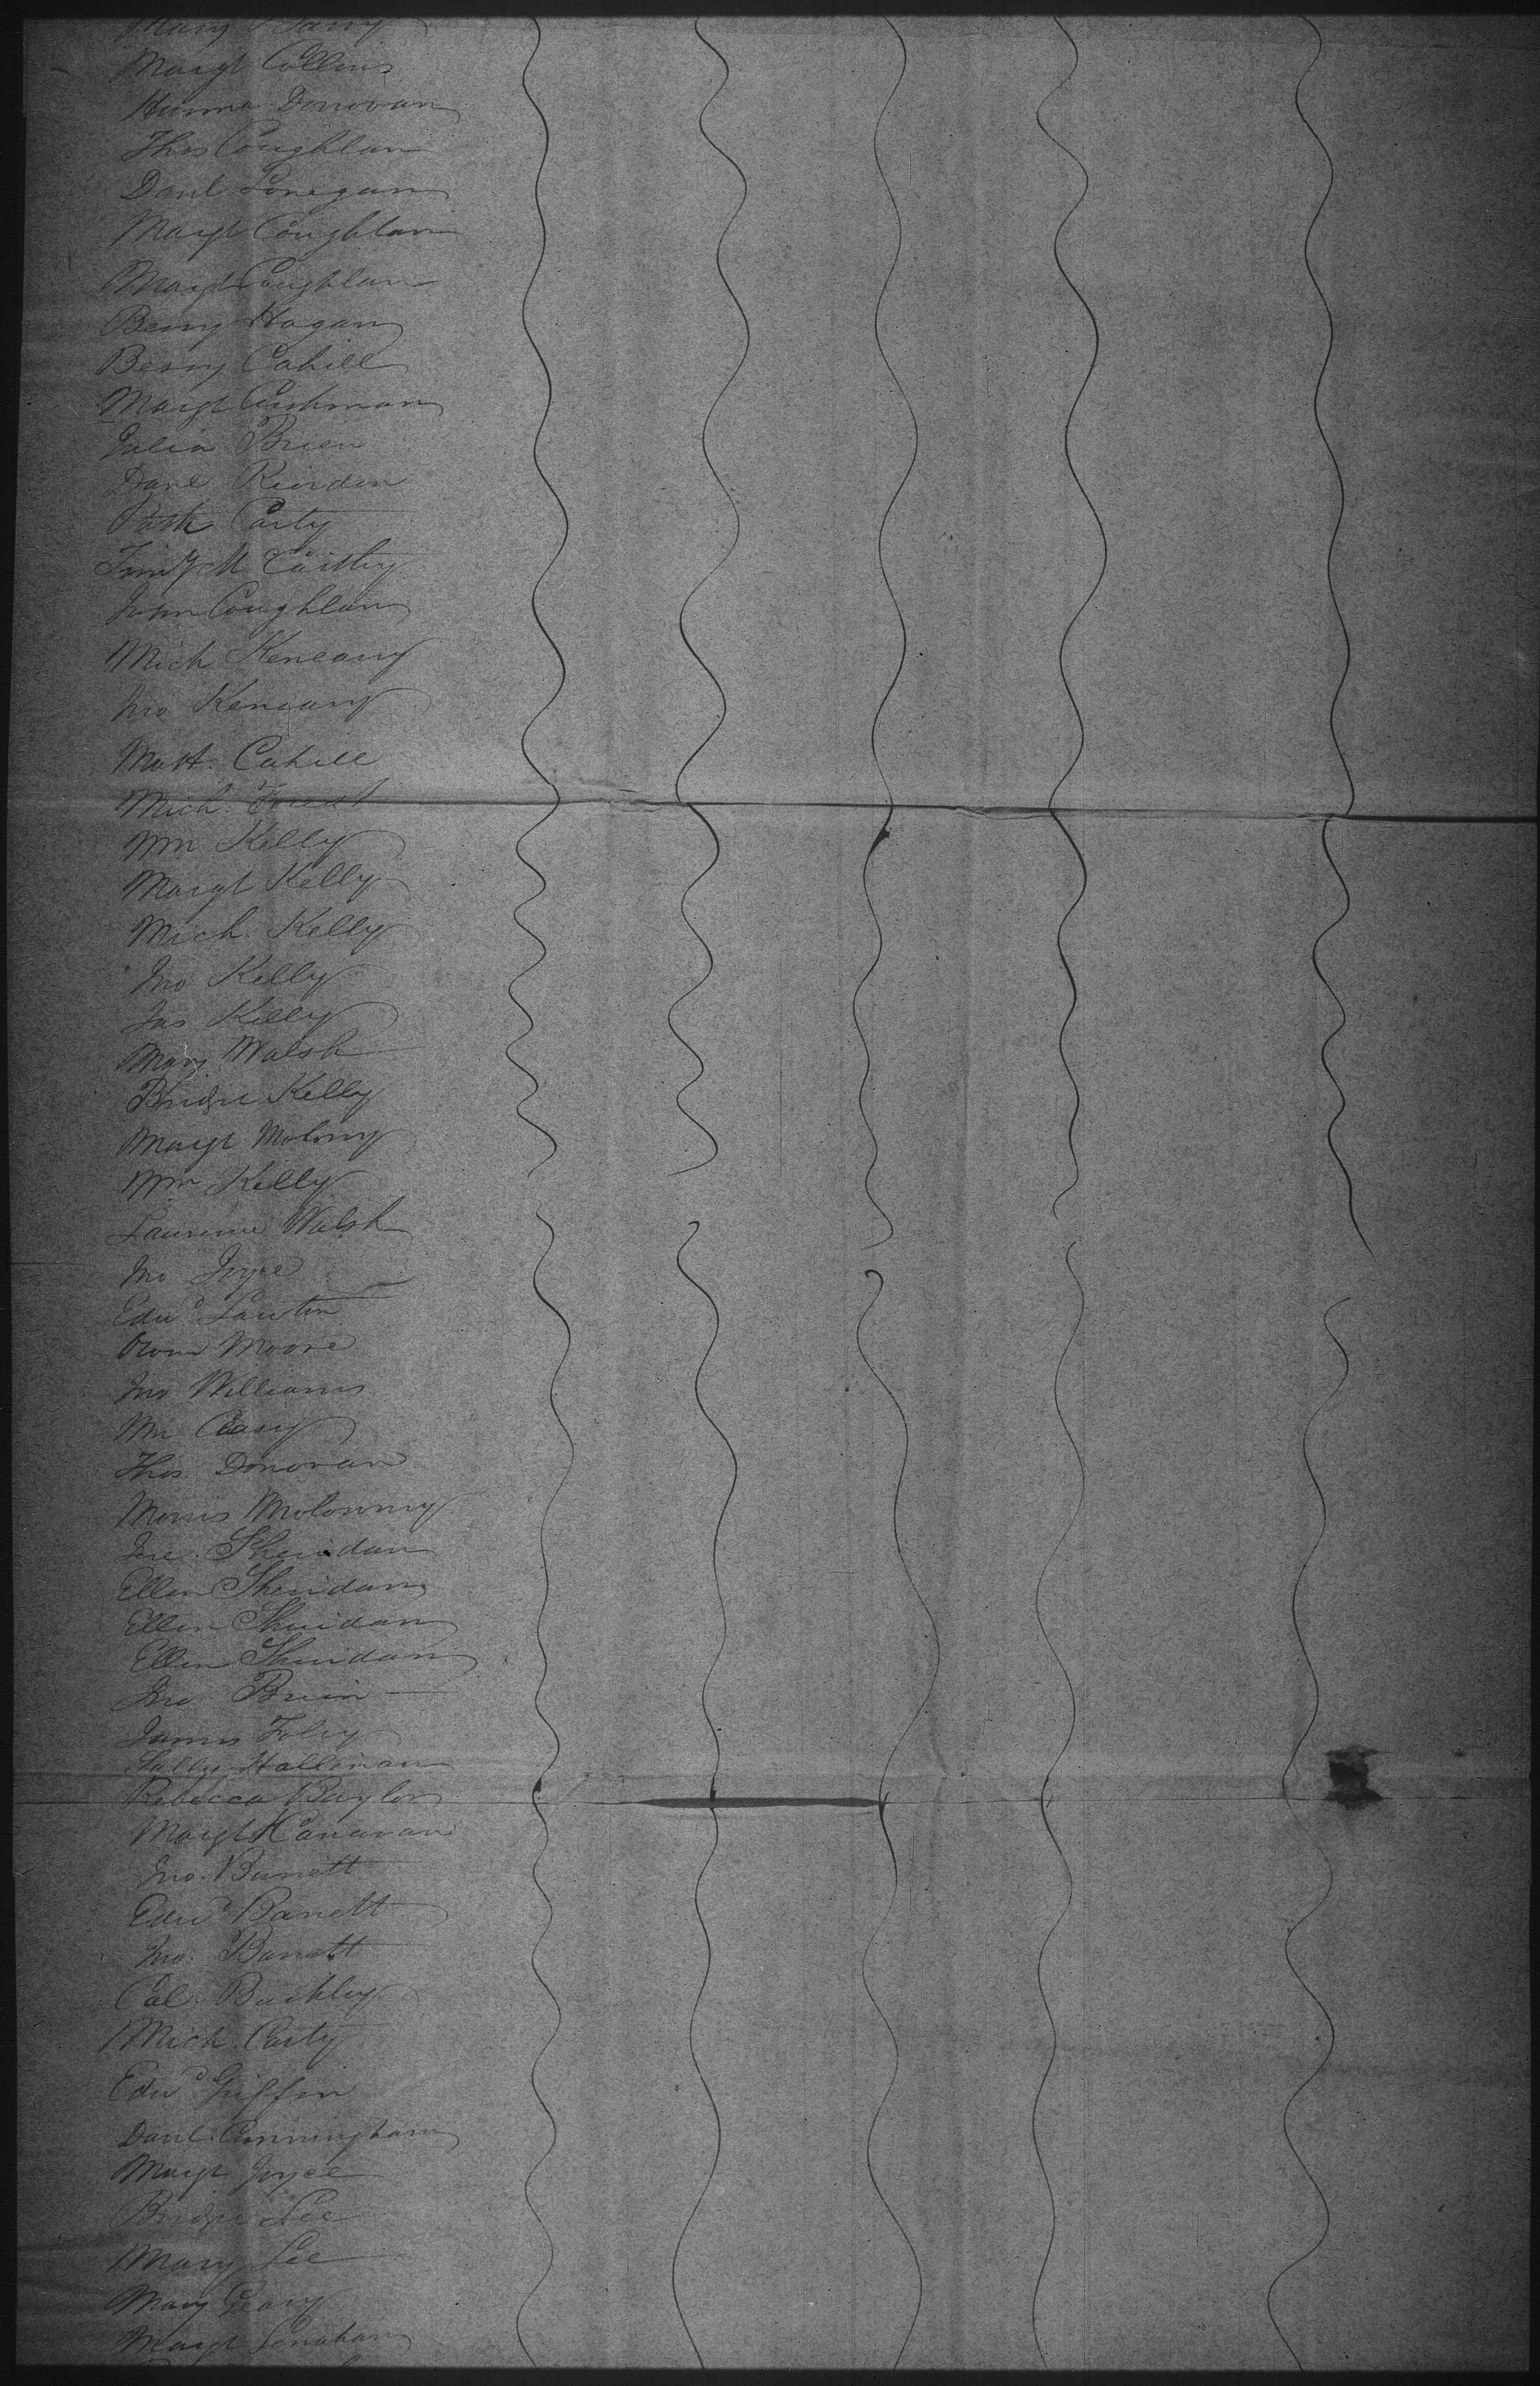 Mary Barry
Margt Collins
Hanna Donovan
Thos Coughlan
Danl Lonegan
Margt Coughlan
Margt Coughlan
Bessy Hogan
Bessy Cahill
Margt Cushman
Julia Brien
Danl Riordan
Patk Carty
Timy McCarthy
John Coughlan
Mich Keneary
Jno Keneary
Matt. Cahill
Mich. Forest
Wm Kelly
Margt Kelly
Mich. Kelly
Jno Kelly
Jas Kelly
Mary Walsh
Bridgt Kelly
Margt Molony
Wm Kelly
Laurence Walsh
Jno Joyce
Edwd Lawton
Owen Moore
Jno Williams
Wm Casey
Thos. Donovan
Morris Molowny
Sheridan
Ellen Sheridan
Ellen Sheridan
Ellen Sheridan
Jno Brien
James Foley
Sally Halloman
Rebecca Baylor
Margt Canavan
Jno. Barrett
Edwd Barrett
Jno. Barrett
Cal. Buckley
Mich. Carty
Edwd Griffin
Danl. Cunningham
Margt Joyce
Bridgt Lee
Mary Lee
Mary Geary
Margt Lonahan